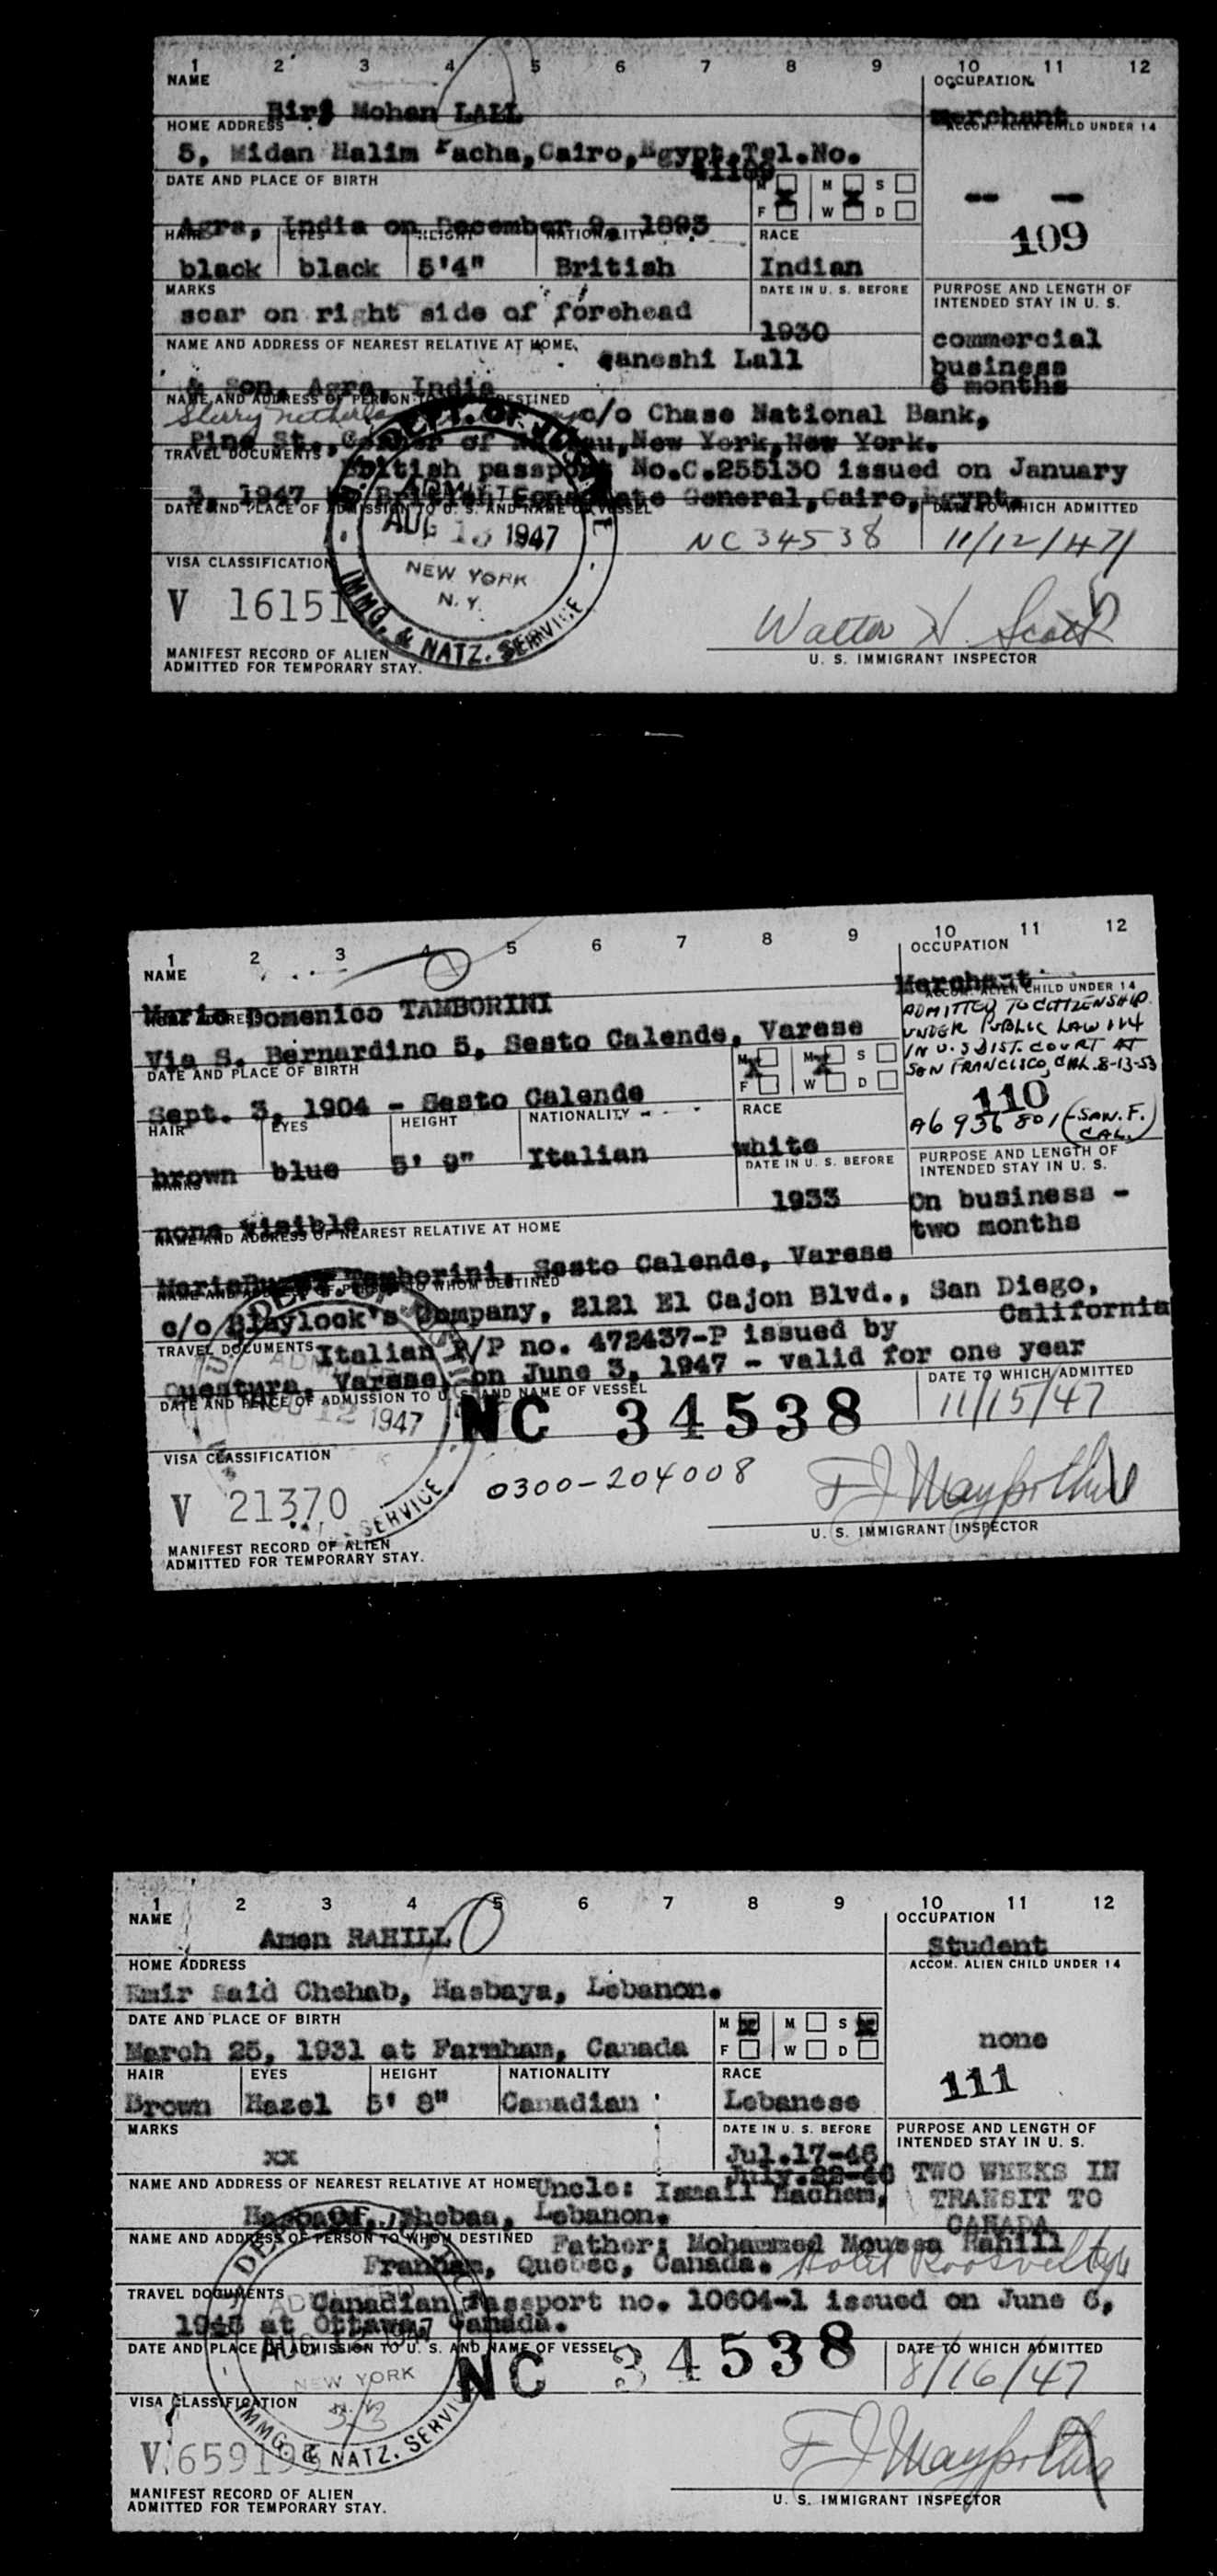 1 2 3 4 5 6 7 8 9 10 11 12
NAME OCCUPATION
Birj Mohan LALL Merchant
HOME ADDRESS ACCOM. ALIEN CHILD UNDER 14
5, Midan Halim Pacha, Cairo, Egypt. Tel.No.
41189
DATE AND PLACE OF BIRTH M M S
-- --
F W D
Agra, India on December 9, 1893 109
HAIR EYES HEIGHT NATIONALITY RACE
black black 5'4" British Indian
MARKS DATE IN U. S. BEFORE PURPOSE AND LENGTH OF
INTENDED STAY IN U. S.
scar on right side of forehead 1930 commercial
business
6 months
NAME AND ADDRESS OF NEAREST RELATIVE AT HOME
Ganeshi Lall
& Son, Agra, India
NAME AND ADDRESS OF PERSON TO WHOM DESTINED
c/o Chase National Bank,
Pine St., Corner of Nassau, New York, New York.
TRAVEL DOCUMENTS
British passport No.C.255130 issued on January
3, 1947 by British Consulate General, Cairo, Egypt.
DATE AND PLACE OF ADMISSION TO U. S. AND NAME OF VESSEL DATE TO WHICH ADMITTED
DEPT. OF
ADMITTED
AUG 13 1947
NEW YORK
N. Y.
IMMG. & NATZ. SERVICE
NC 34538 11/12/47
VISA CLASSIFICATION
V 16151
Walter H. Scott
MANIFEST RECORD OF ALIEN
ADMITTED FOR TEMPORARY STAY.
U. S. IMMIGRANT INSPECTOR
1 2 3 4 5 6 7 8 9 10 11 12
NAME OCCUPATION
Mario Domenico TAMBORINI Merchant
HOME ADDRESS ACCOM. ALIEN CHILD UNDER 14
Via S. Bernardino 5, Sesto Calende, Varese
ADMITTED TO CITIZENSHIP
UNDER PUBLIC LAW 114
IN U.S DIST. COURT AT
SAN FRANCISCO, CAL. 8-13-53
110
A6 936 801 (SAN. F.
CAL.)
DATE AND PLACE OF BIRTH M M S
F W D
Sept. 3, 1904 - Sesto Calende
HAIR EYES HEIGHT NATIONALITY RACE
brown blue 5' 9" Italian white
MARKS DATE IN U. S. BEFORE PURPOSE AND LENGTH OF
INTENDED STAY IN U. S.
none visible 1933 On business -
two months
NAME AND ADDRESS OF NEAREST RELATIVE AT HOME
Tamborini, Sesto Calende, Varese
NAME AND ADDRESS OF PERSON TO WHOM DESTINED
c/o Blaylock's Company, 2121 El Cajon Blvd., San Diego,
California
TRAVEL DOCUMENTS Italian P/P no. 472437-P issued by
Questura, Varese, on June 3, 1947 - valid for one year
DATE AND PLACE OF ADMISSION TO U. S. AND NAME OF VESSEL DATE TO WHICH ADMITTED
AUG 12 1947
SERVICE
NC 34538 11/15/47
VISA CLASSIFICATION
V 21370 0300-204008
MANIFEST RECORD OF ALIEN
ADMITTED FOR TEMPORARY STAY.
U. S. IMMIGRANT INSPECTOR
1 2 3 4 5 6 7 8 9 10 11 12
NAME OCCUPATION
Amen RAHILL Student
HOME ADDRESS ACCOM. ALIEN CHILD UNDER 14
Emir Said Chehab, Hasbaya, Lebanon.
DATE AND PLACE OF BIRTH M M S
F W D
March 25, 1931 at Farnham, Canada none
111
HAIR EYES HEIGHT NATIONALITY RACE
Brown Hazel 5' 8" Canadian Lebanese
MARKS DATE IN U. S. BEFORE PURPOSE AND LENGTH OF
INTENDED STAY IN U. S.
xx Jul.17-46
July.22-46
TWO WEEKS IN
TRANSIT TO
CANADA
NAME AND ADDRESS OF NEAREST RELATIVE AT HOME Uncle: Ismail Hachem,
Hasbaya, Chebaa, Lebanon.
NAME AND ADDRESS OF PERSON TO WHOM DESTINED Father: Mohammed Moussa Rahill
Franham, Quebec, Canada. Hotel Roosvelt
TRAVEL DOCUMENTS Canadian Passport no. 10604-1 issued on June 6,
1946 at Ottawa, Canada.
DATE AND PLACE OF ADMISSION TO U. S. AND NAME OF VESSEL DATE TO WHICH ADMITTED
NEW YORK
IMMG. & NATZ. SERVICE
NC 34538 8/16/47
VISA CLASSIFICATION
MANIFEST RECORD OF ALIEN
ADMITTED FOR TEMPORARY STAY.
U. S. IMMIGRANT INSPECTOR